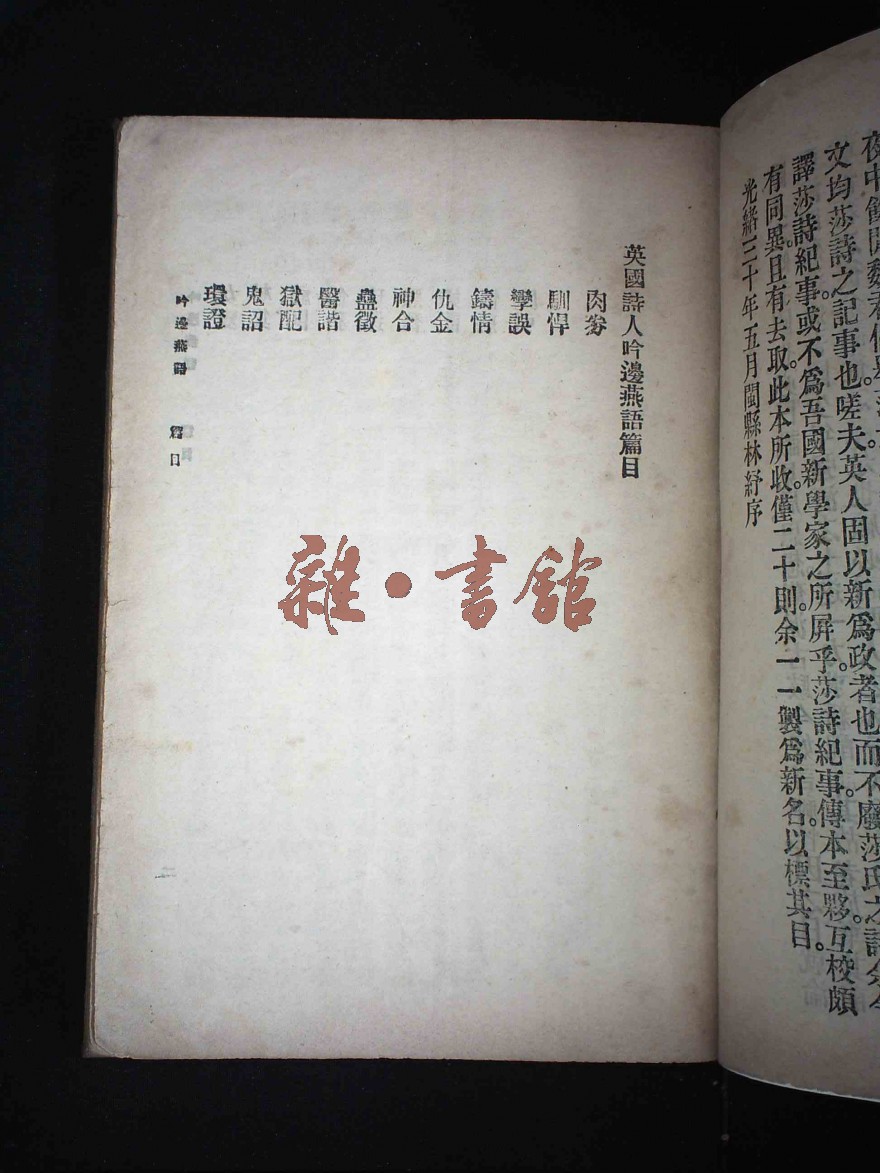 文均莎詩之記事也嗟夫英人固以新爲政者也而不廢莎氏之詩余今
譯莎詩紀事。或不爲吾國新學家之所屏乎。莎詩紀事。傳本至夥。互校頗
有同異。且有去取。此本所收。僅二十則。余一一製爲新名。以標其目。
光緒三十年五月閩縣林紓序
英國詩人吟邊燕語篇目
肉劵
馴悍
孿誤
鑄情
仇金
神合
蠱徵
醫諧
獄配
鬼詔
環證
吟邊燕語 篇目 二
雜·書館